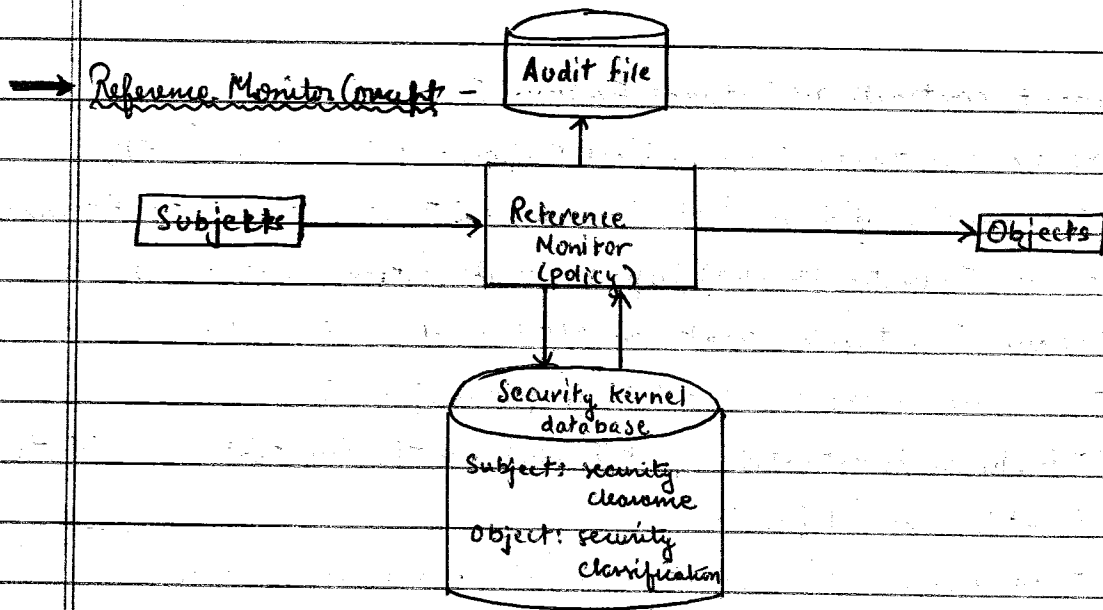 Audit file
Reference Monitor Concept -
Subjects
Reference
Monitor
(policy)
Objects
Security kernel
database
Subject: security
clearance
Object: security
classification